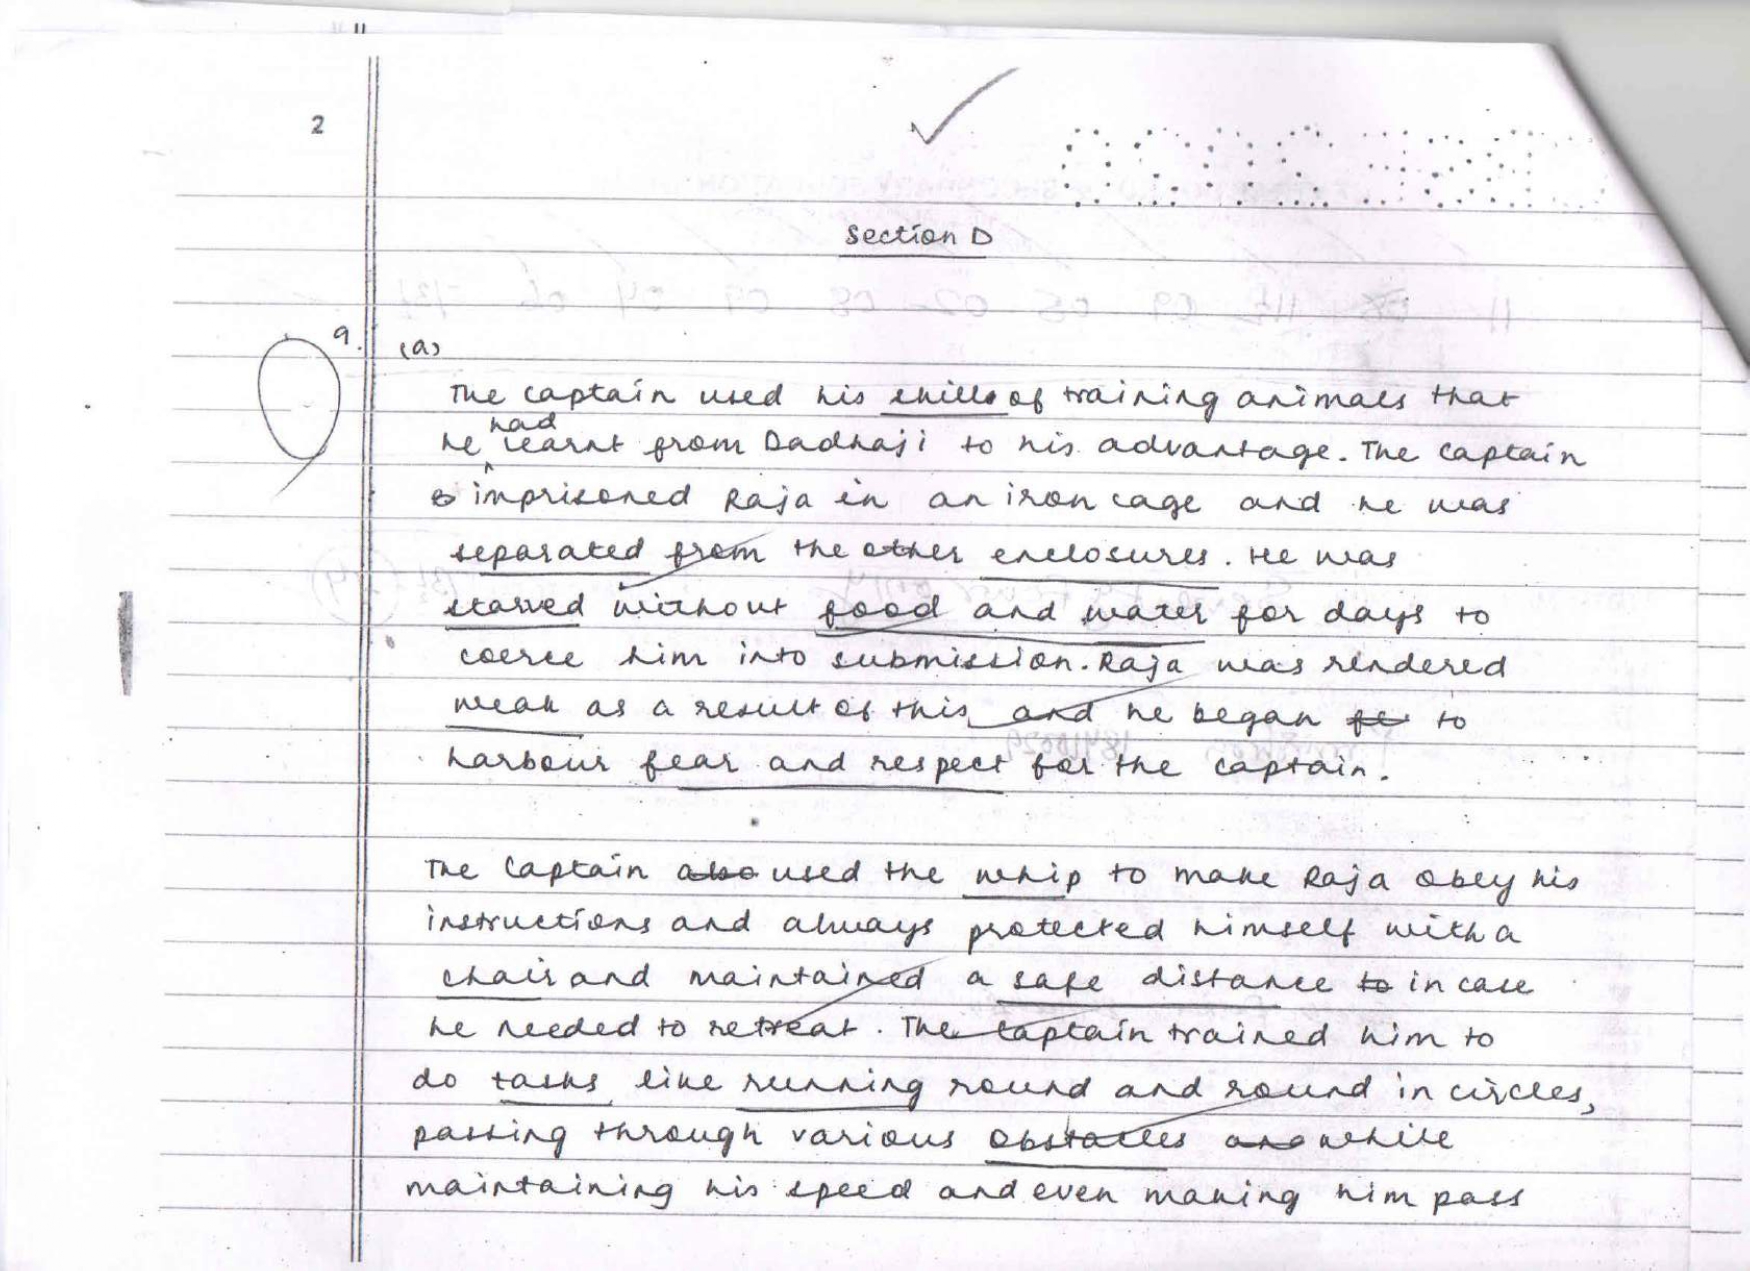 2
Section D
9. (a)
The Captain used his skills of training animals that
he had learnt from Dadhaji to his advantage. The Captain
imprisoned Raja in an iron cage and he was
separated from the other enclosures. He was
starved without food and water for days to
coerce him into submission. Raja was rendered
weak as a result of this and he began to
harbour fear and respect for the captain.
The Captain also used the whip to make Raja obey his
instructions and always protected himself with a
chair and maintained a safe distance to in case
he needed to retreat. The Captain trained him to
do tasks like running round and round in circles,
passing through various obstacles and while
maintaining his speed and even making him pass